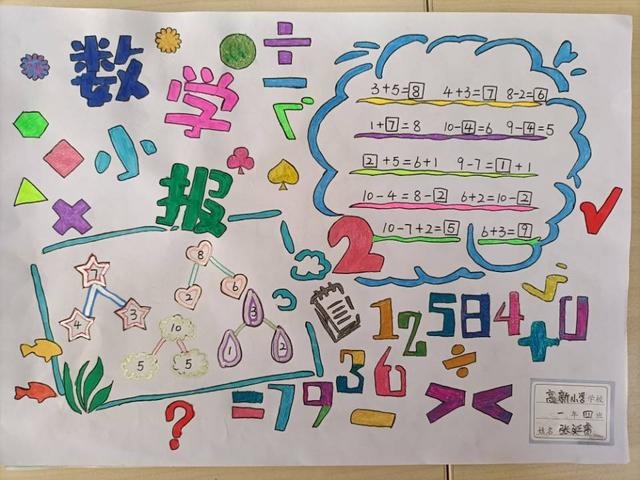 数学小报
÷
3+5=8 4+3=7 8-2=6
1+7=8 10-4=6 9-4=5
2+5=6+1 9-7=1+1
10-4=8-2 6+2=10-2
10-7+2=5 6+3=9
7
4 3
8
2 6
10
5 5
3
1 2
2
3
1 2 5 8 4 + 0
= 7 9 3 6 ÷ - > <
?
高新小学学校
一年四班
姓名